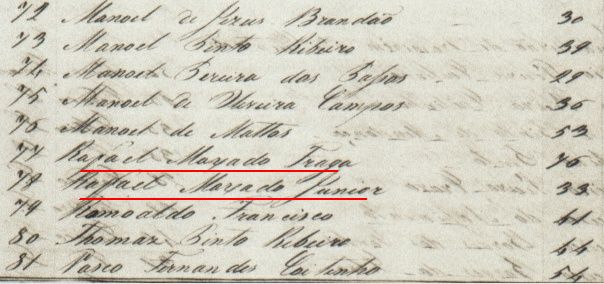 72 Manoel de Jezus Brandão 30
73 Manoel Pinto Ribeiro 39
74 Manoel Pereira dos Passos 29
75 Manoel de Oliveira Campos 36
76 Manoel de Mattos 53
77 Rafael Maxado Fraga 76
78 Rafael Maxado Junior 33
79 Romoaldo Francisco 41
80 Thomaz Pinto Ribeiro 44
81 Vasco Fernandes Coitinho 54